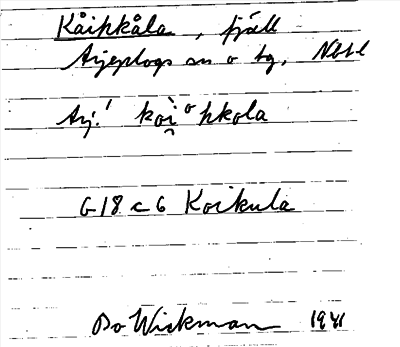 Kåihkåla, fjäll
Arjeplogs sn o tg, Nbtl
Arj.! koi̯ ̀ºhkola
G 18 c 6 Koikula
Bo Wickman 1941